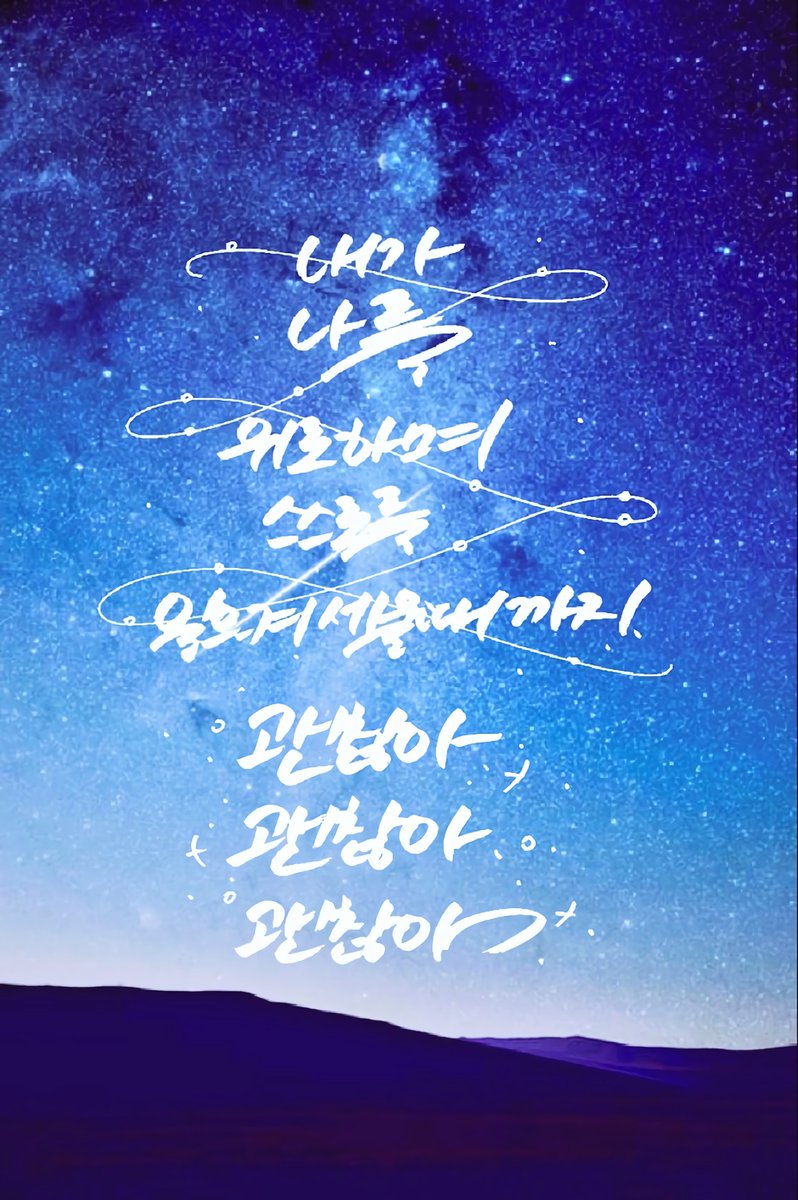 내가
나를
위로하며
스스로를
일으켜 세울 때까지
괜찮아
괜찮아
괜찮아